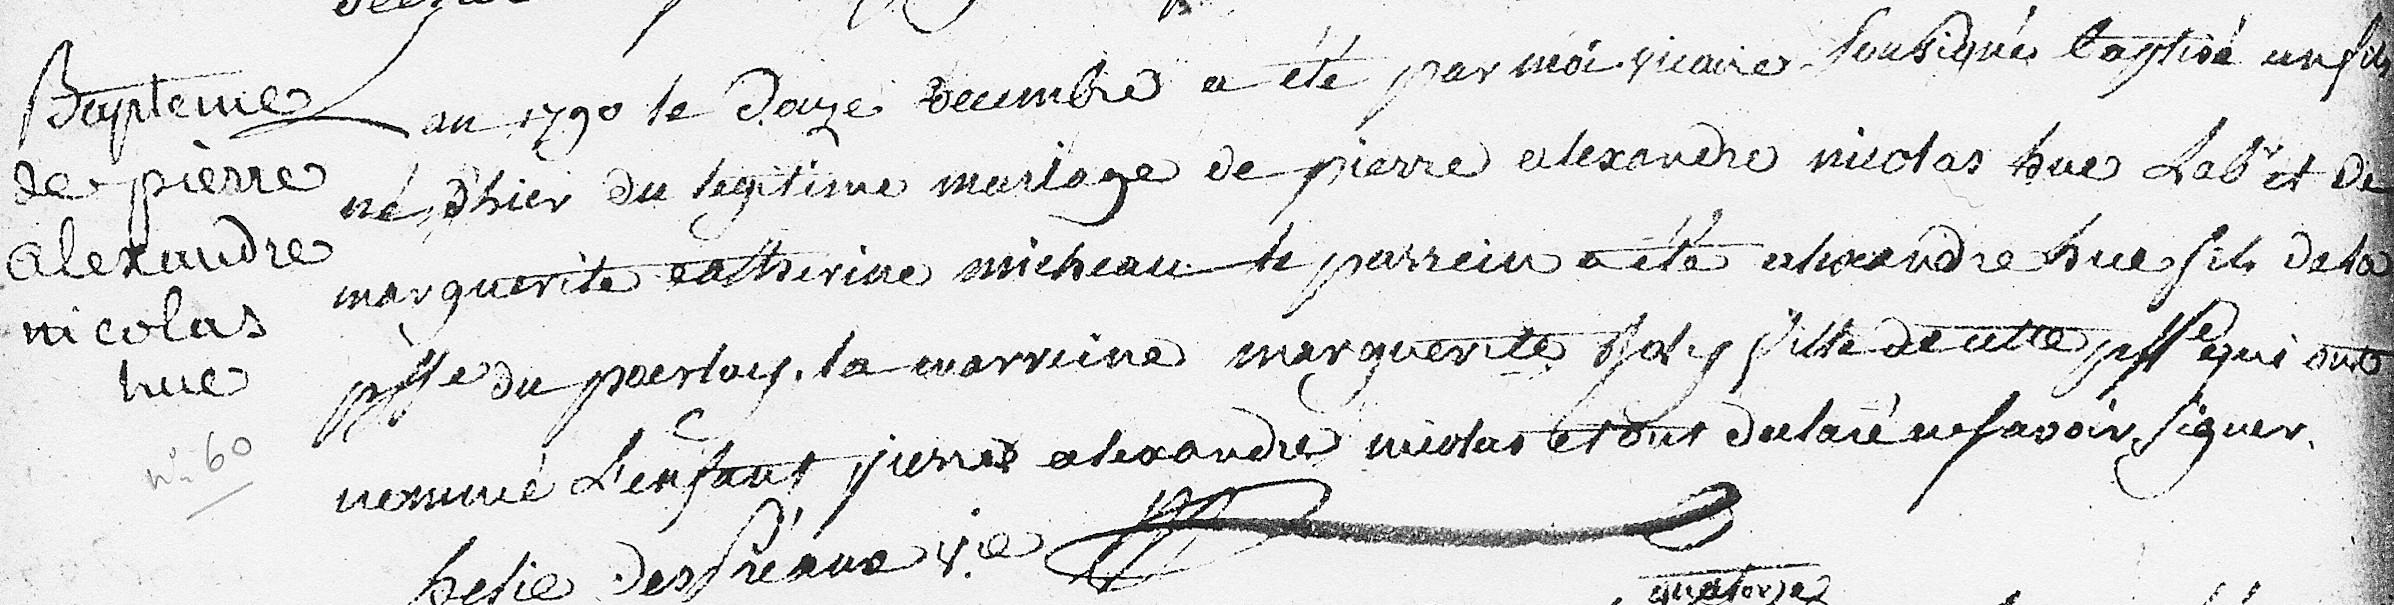 Bapteme
de pierre
alexandre
nicolas
hue
n° 60
an 1790 le douze decembre a été par moi vicaire sousigné baptisé un fils
né d'hier du legitime mariage de pierre alexandre nicolas hue Labr et de
marguerite catherine micheau le parrein a été alexandre hue fils de la
psse du marraine marguerite fille de cette psse qui ont
nommé L'enfant pierre alexandre nicolas et ont declaré ne savoir signer.
helie des Préaux v.re
quatorze